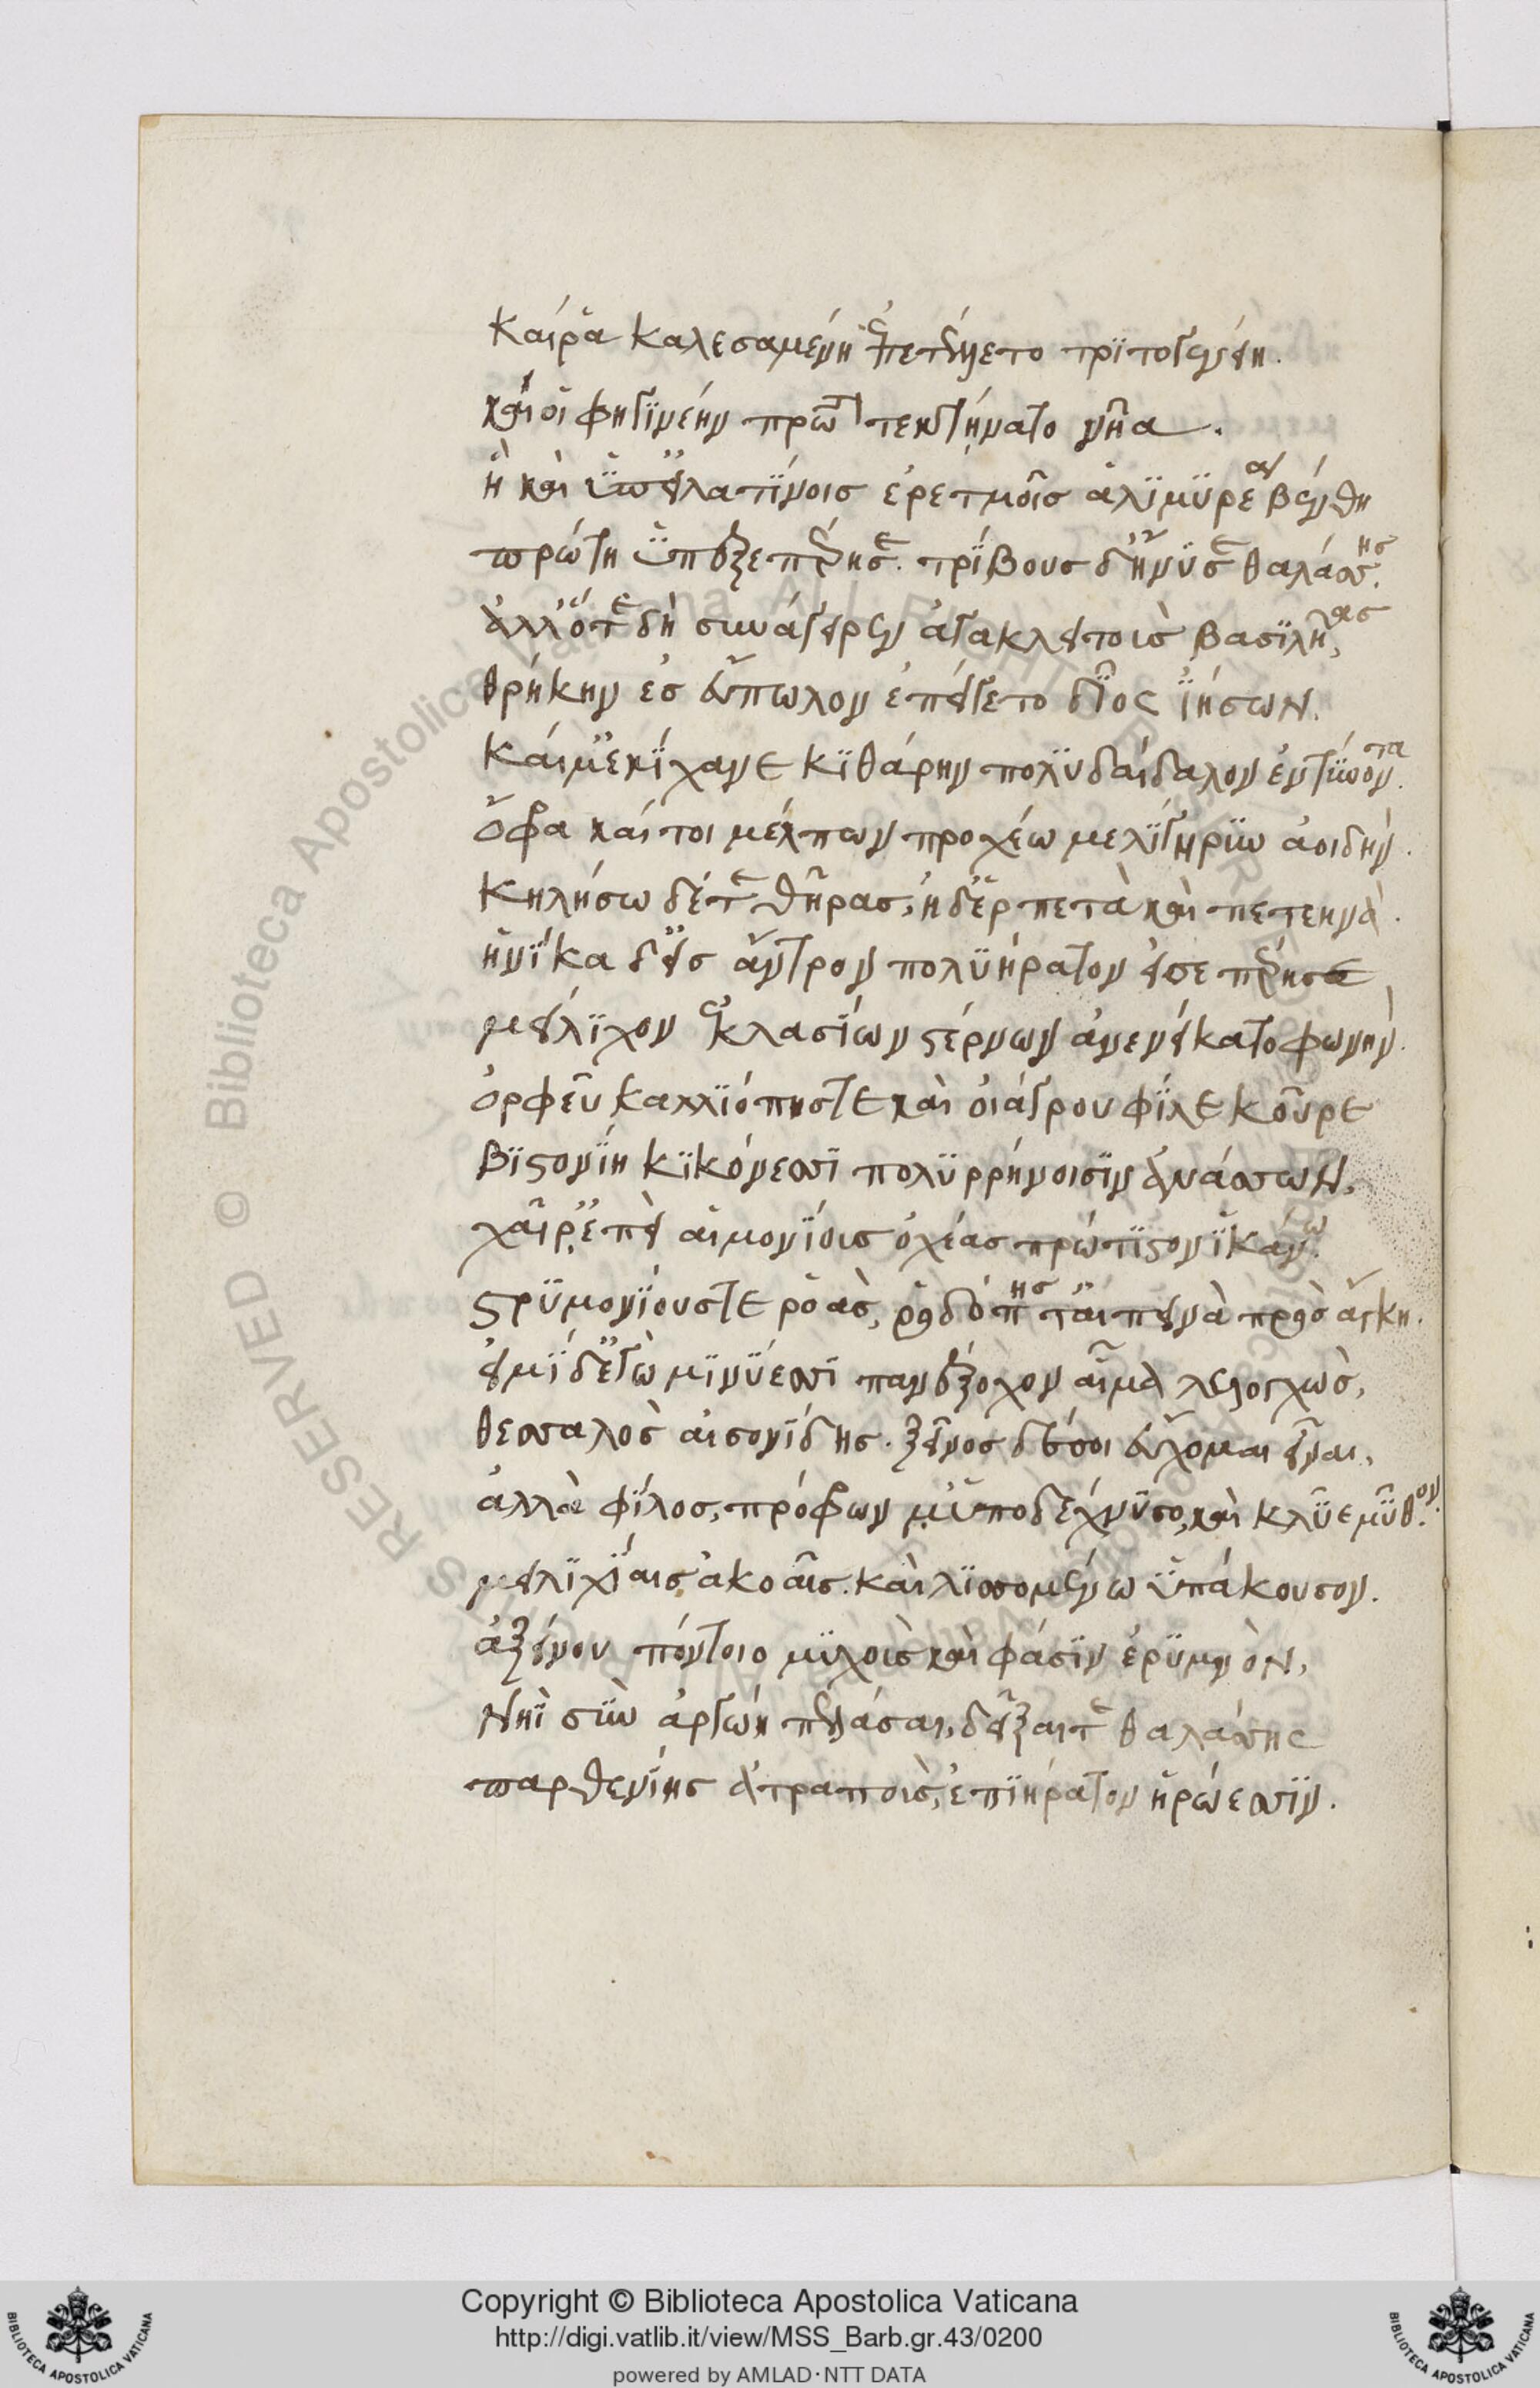 καί ῥα καλεσαμένη ἐπετέλλετο τριτογενείη.
καί οἱ φηγινέην πρῶτον τεκτήνατο νῆα.
ἣ καὶ ὑπ' εἰλατίνοις ἐρετμοῖς ἁλιμυρέα βένθη
πρώτη ὑπεξεπέρησε. τρίβους δ' ἤνυσε θαλάσσης.
ἀλλ' ὅτε δὴ συνάγειρεν ἀγακλειτοὺς βασιλῆας,
θρήκην ἐς εὔπωλον ἐπείγετο δῖος ἰήσων.
καί μ' ἐκίχανε κιθάρην πολυδαίδαλον ἐντύνοντα.
ὄφρα καί τοι μέλπων προχέω μελίγηρυν ἀοιδήν.
κηλήσω δέ τε θῆρας, ἠδ' ἑρπετὰ καὶ πετεηνά.
ἡνίκα δ' εἰς ἄντρον πολυήρατον εἰσεπέρησε
μείλιχον ἐκ λασίων στέρνων ἀνενείκατο φωνήν.
ὀρφεῦ καλλιόπης τε καὶ οἰάγρου φίλε κοῦρε
βιστονίη κικόνεσσι πολυρρήνοισιν ἀνάσσων,
χαῖρ', ἐπεὶ αἱμονίοις ὀχέας πρώτιστον ἱκάνω.
στρυμονίους τε ῥοὰς, ῥοδόπης τ' αἰπεινὰ πρὸς ἄγκη.
εἰμὶ δ' ἐγὼ μινύεσσι πανέξοχον αἷμα λελογχὼς,
θεσσαλὸς αἰσονίδης. ξεῖνος δέ σοι εὔχομαι εἶναι,
ἀλλὰ φίλος, πρόφρων μ' ὑποδέχνυσο, καὶ κλῦε μῦθον.
μειλιχίαις ἀκοαῖς. καὶ λισσομένω ὑπάκουσον.
ἀξείνου πόντοιο μυχοὺς καὶ φάσιν ἐρυμνὸν,
νηῒ σὺν ἀργώη πελάσαι, δεῖξαί τε θαλάσσης
παρθενίης ἀτραποὺς, ἐπιήρατον ἡρώεσσιν.
Copyright © Biblioteca Apostolica Vaticana
http://digi.vatlib.it/view/MSS_Barb.gr.43/0200
powered by AMLAD·NTT DATA